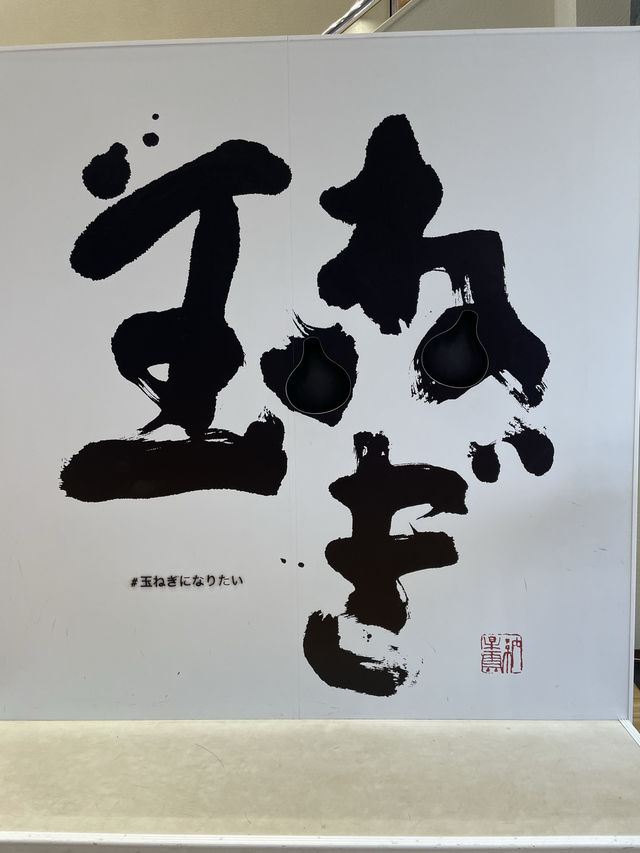 玉ねぎ
#玉ねぎになりたい